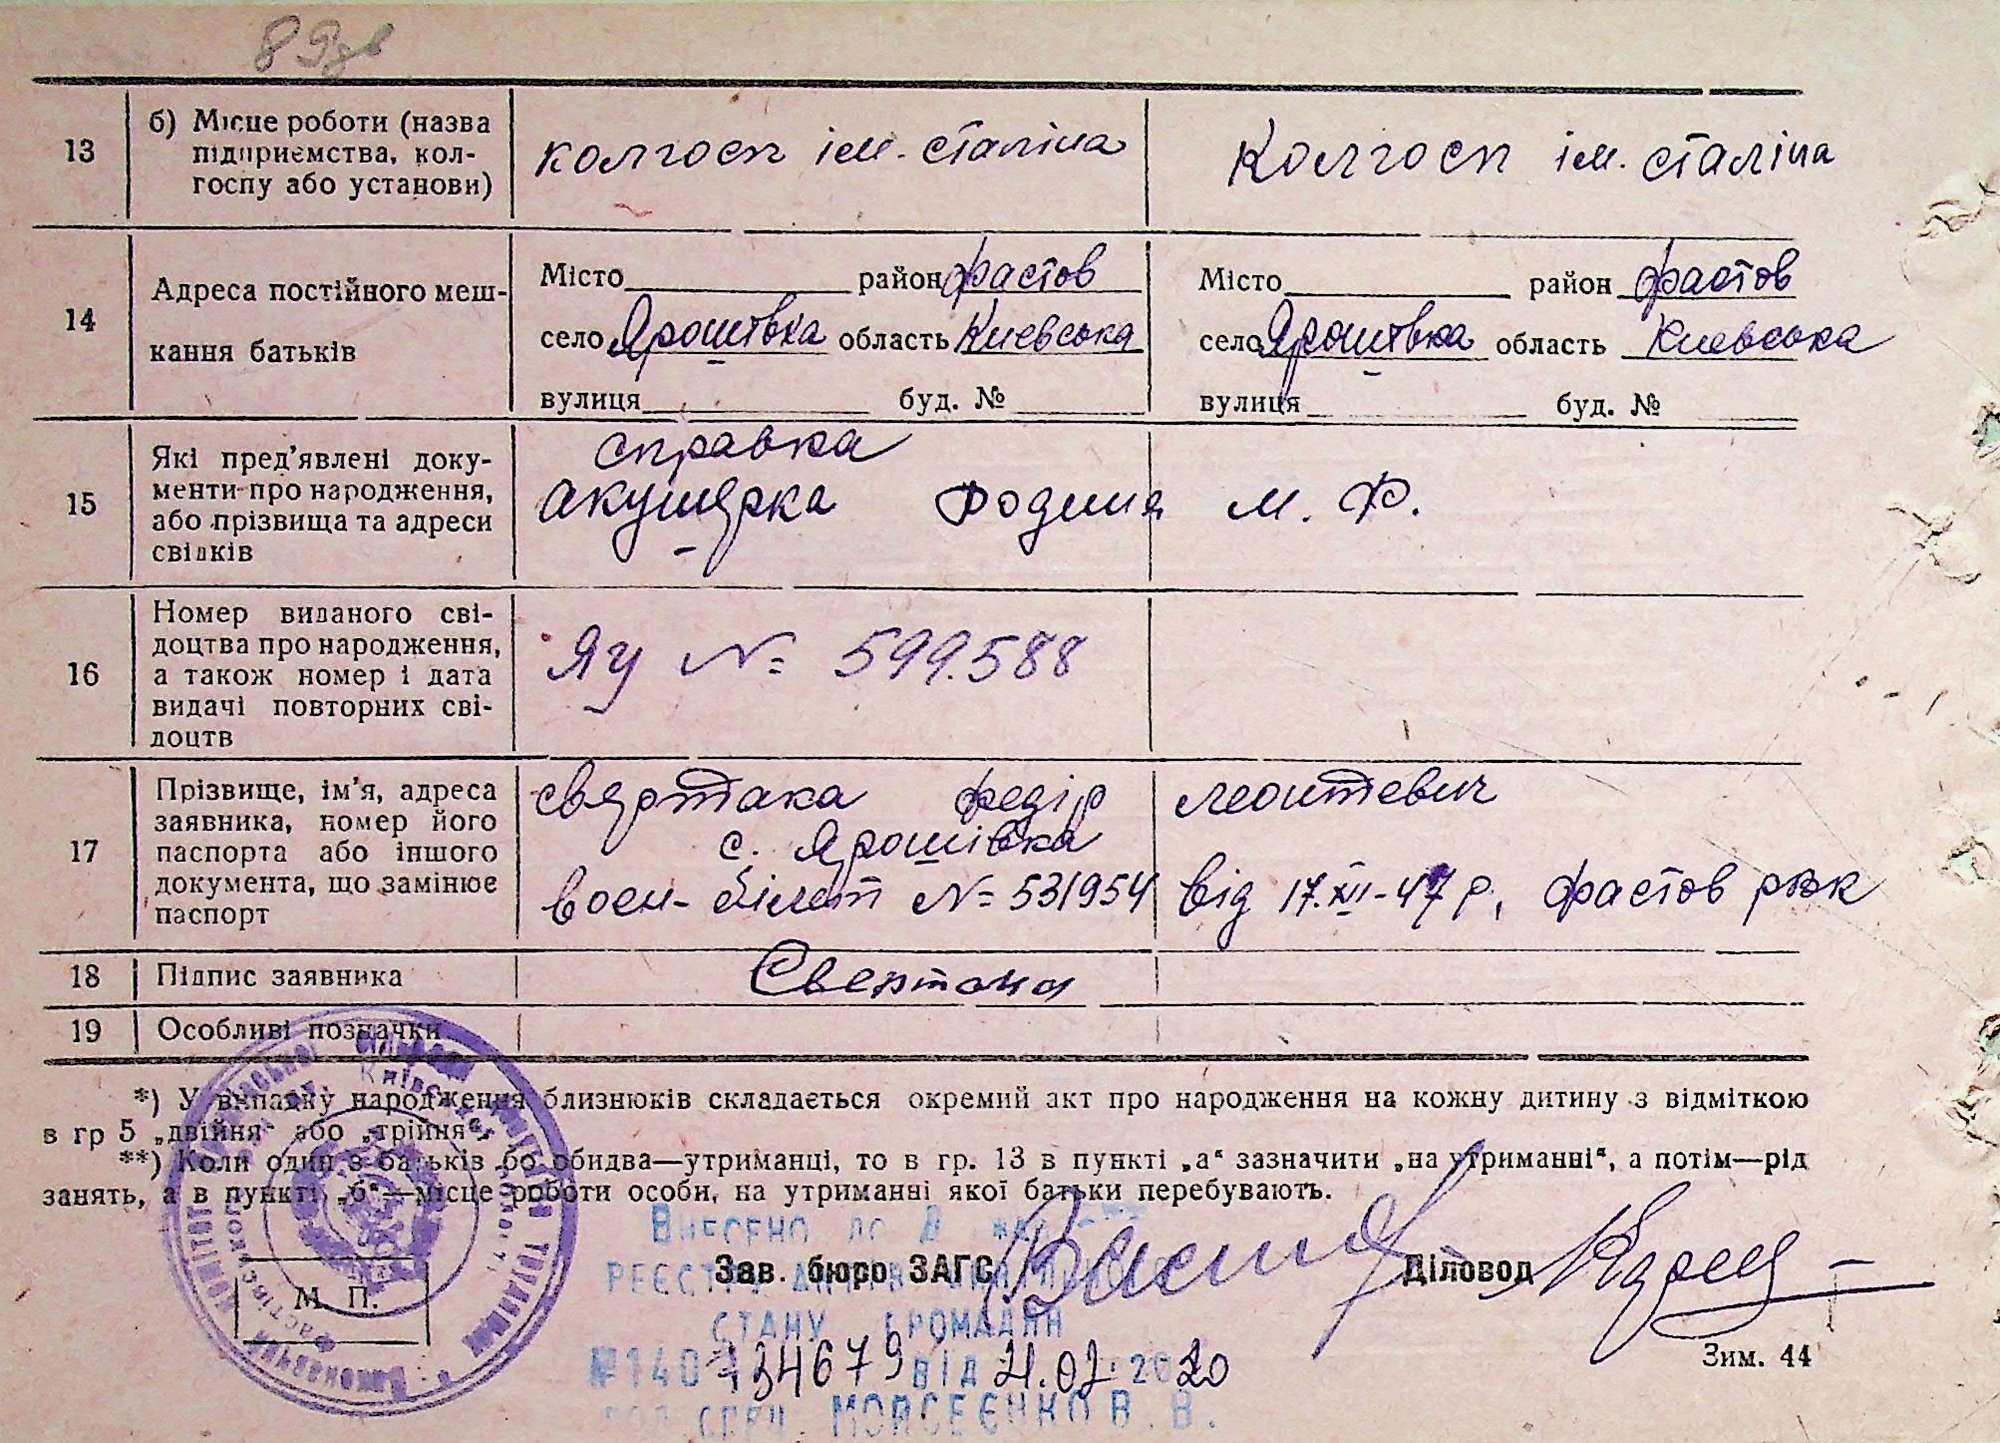 89зв
13 б) Місце роботи (назва підприємства, колгоспу або установи) колгосп ім. сталіна Колгосп ім. сталіна
14 Адреса постійного мешкання батьків
Місто район Фастов Місто район Фастов
село Ярошівка область Киевська село Ярошівка область Киевська
вулиця буд. № вулиця буд. №
15 Які пред'явлені документи про народження, або прізвища та адреси свідків
справка
акушерка Родина М. Ф.
16 Номер виданого свідоцтва про народження, а також номер і дата видачі повторних свідоцтв
ЯУ № 599.588
17 Прізвище, ім'я, адреса заявника, номер його паспорта або іншого документа, що замінює паспорт
Свяртака Федір Леонтевич
с. Ярошівка
воен-білет № 531954 від 17.XII-47 р, Фастов рвк
18 Підпис заявника
19 Особливі позначки
*) У випадку народження близнюків складається окремий акт про народження на кожну дитину з відміткою
в гр 5 „двійня" або „трійня".
**) Коли один з батьків бо обидва—утриманці, то в гр. 13 в пункті „а" зазначити „на утриманні", а потім—рід
занять, а в пункті „б"—місце роботи особи, на утриманні якої батьки перебувають.
Внесено до Д
Зав. бюро ЗАГС Діловод
РЕЄСТРУ
СТАНУ ГРОМАДЯН
М. П.
Зим. 44
№140 134679 від 21.02.2020
МОЙСЕЄНКО В. В.